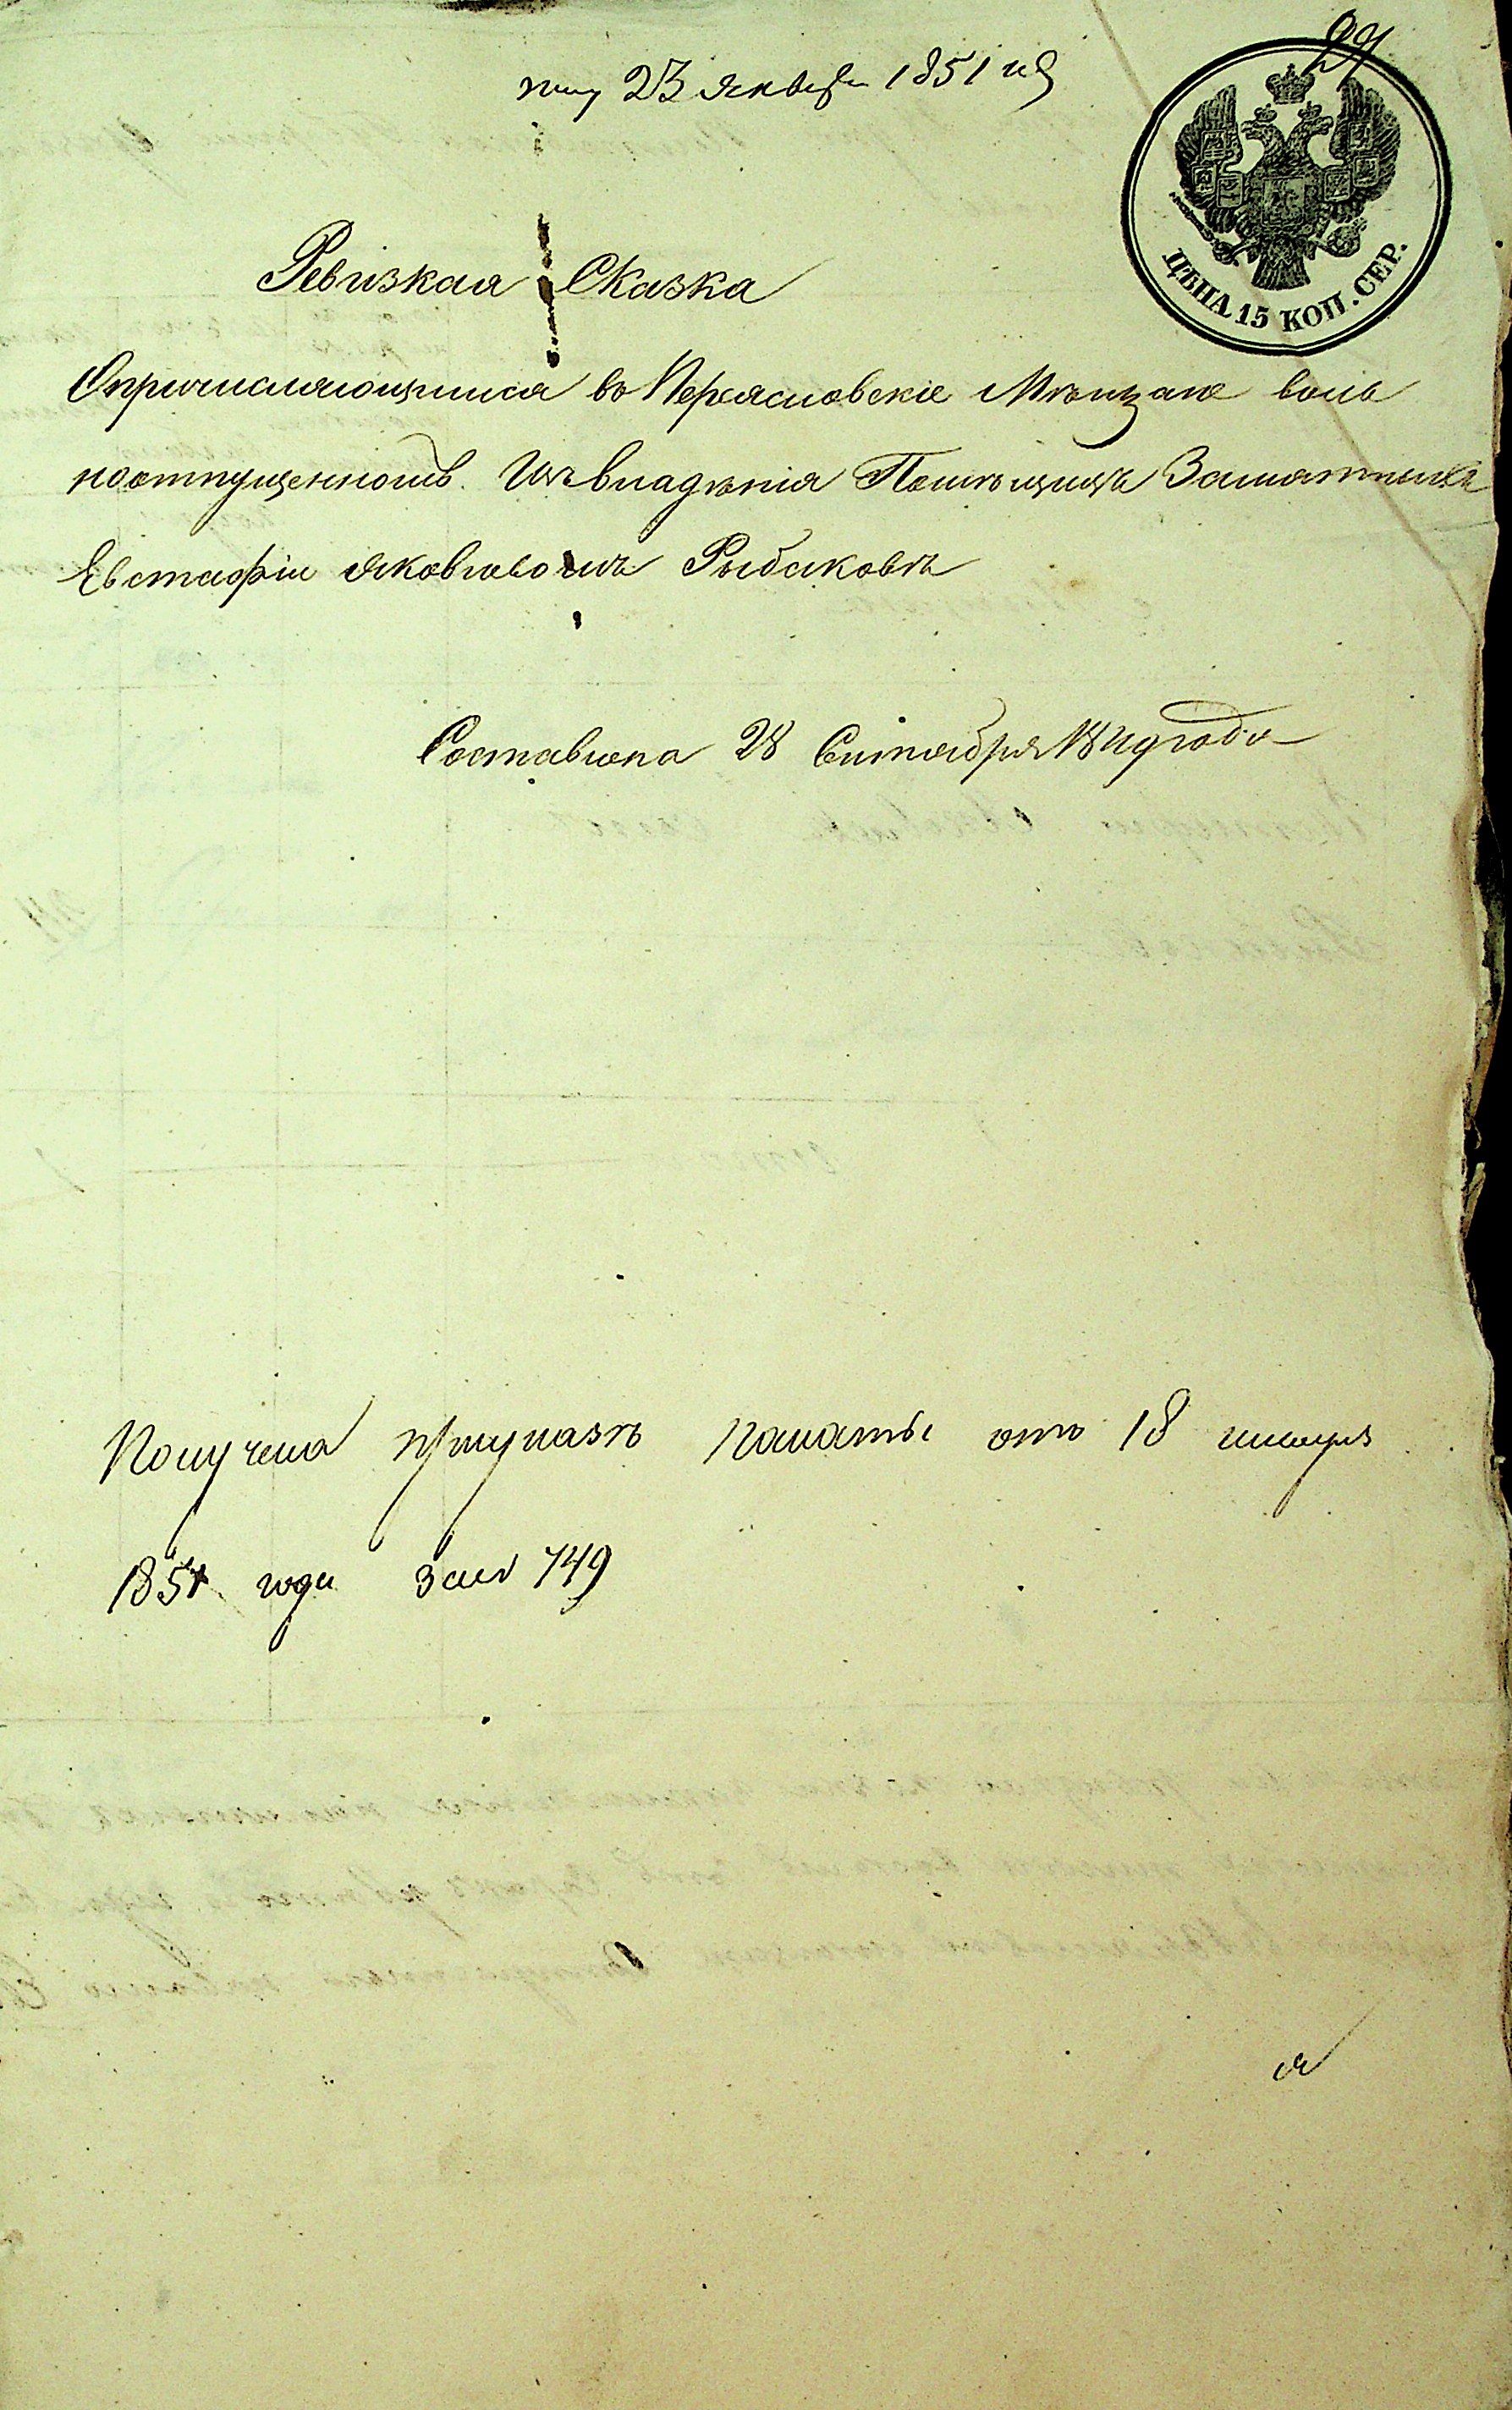 29
23 января 1851 на
ЦѢНА 15 КОП. СЕР.
Ревизкая Сказка
Опричисляющимся въ Переясловскіе Мѣщане воль
ноотпущенномъ. Изъ владѣнія Помѣщицы
Евстафіи Яковлевомъ Рыбаковѣ
Составлена 28 Сентября года
Получена приуказѣ палаты отъ 18 января
1851 года за № 749